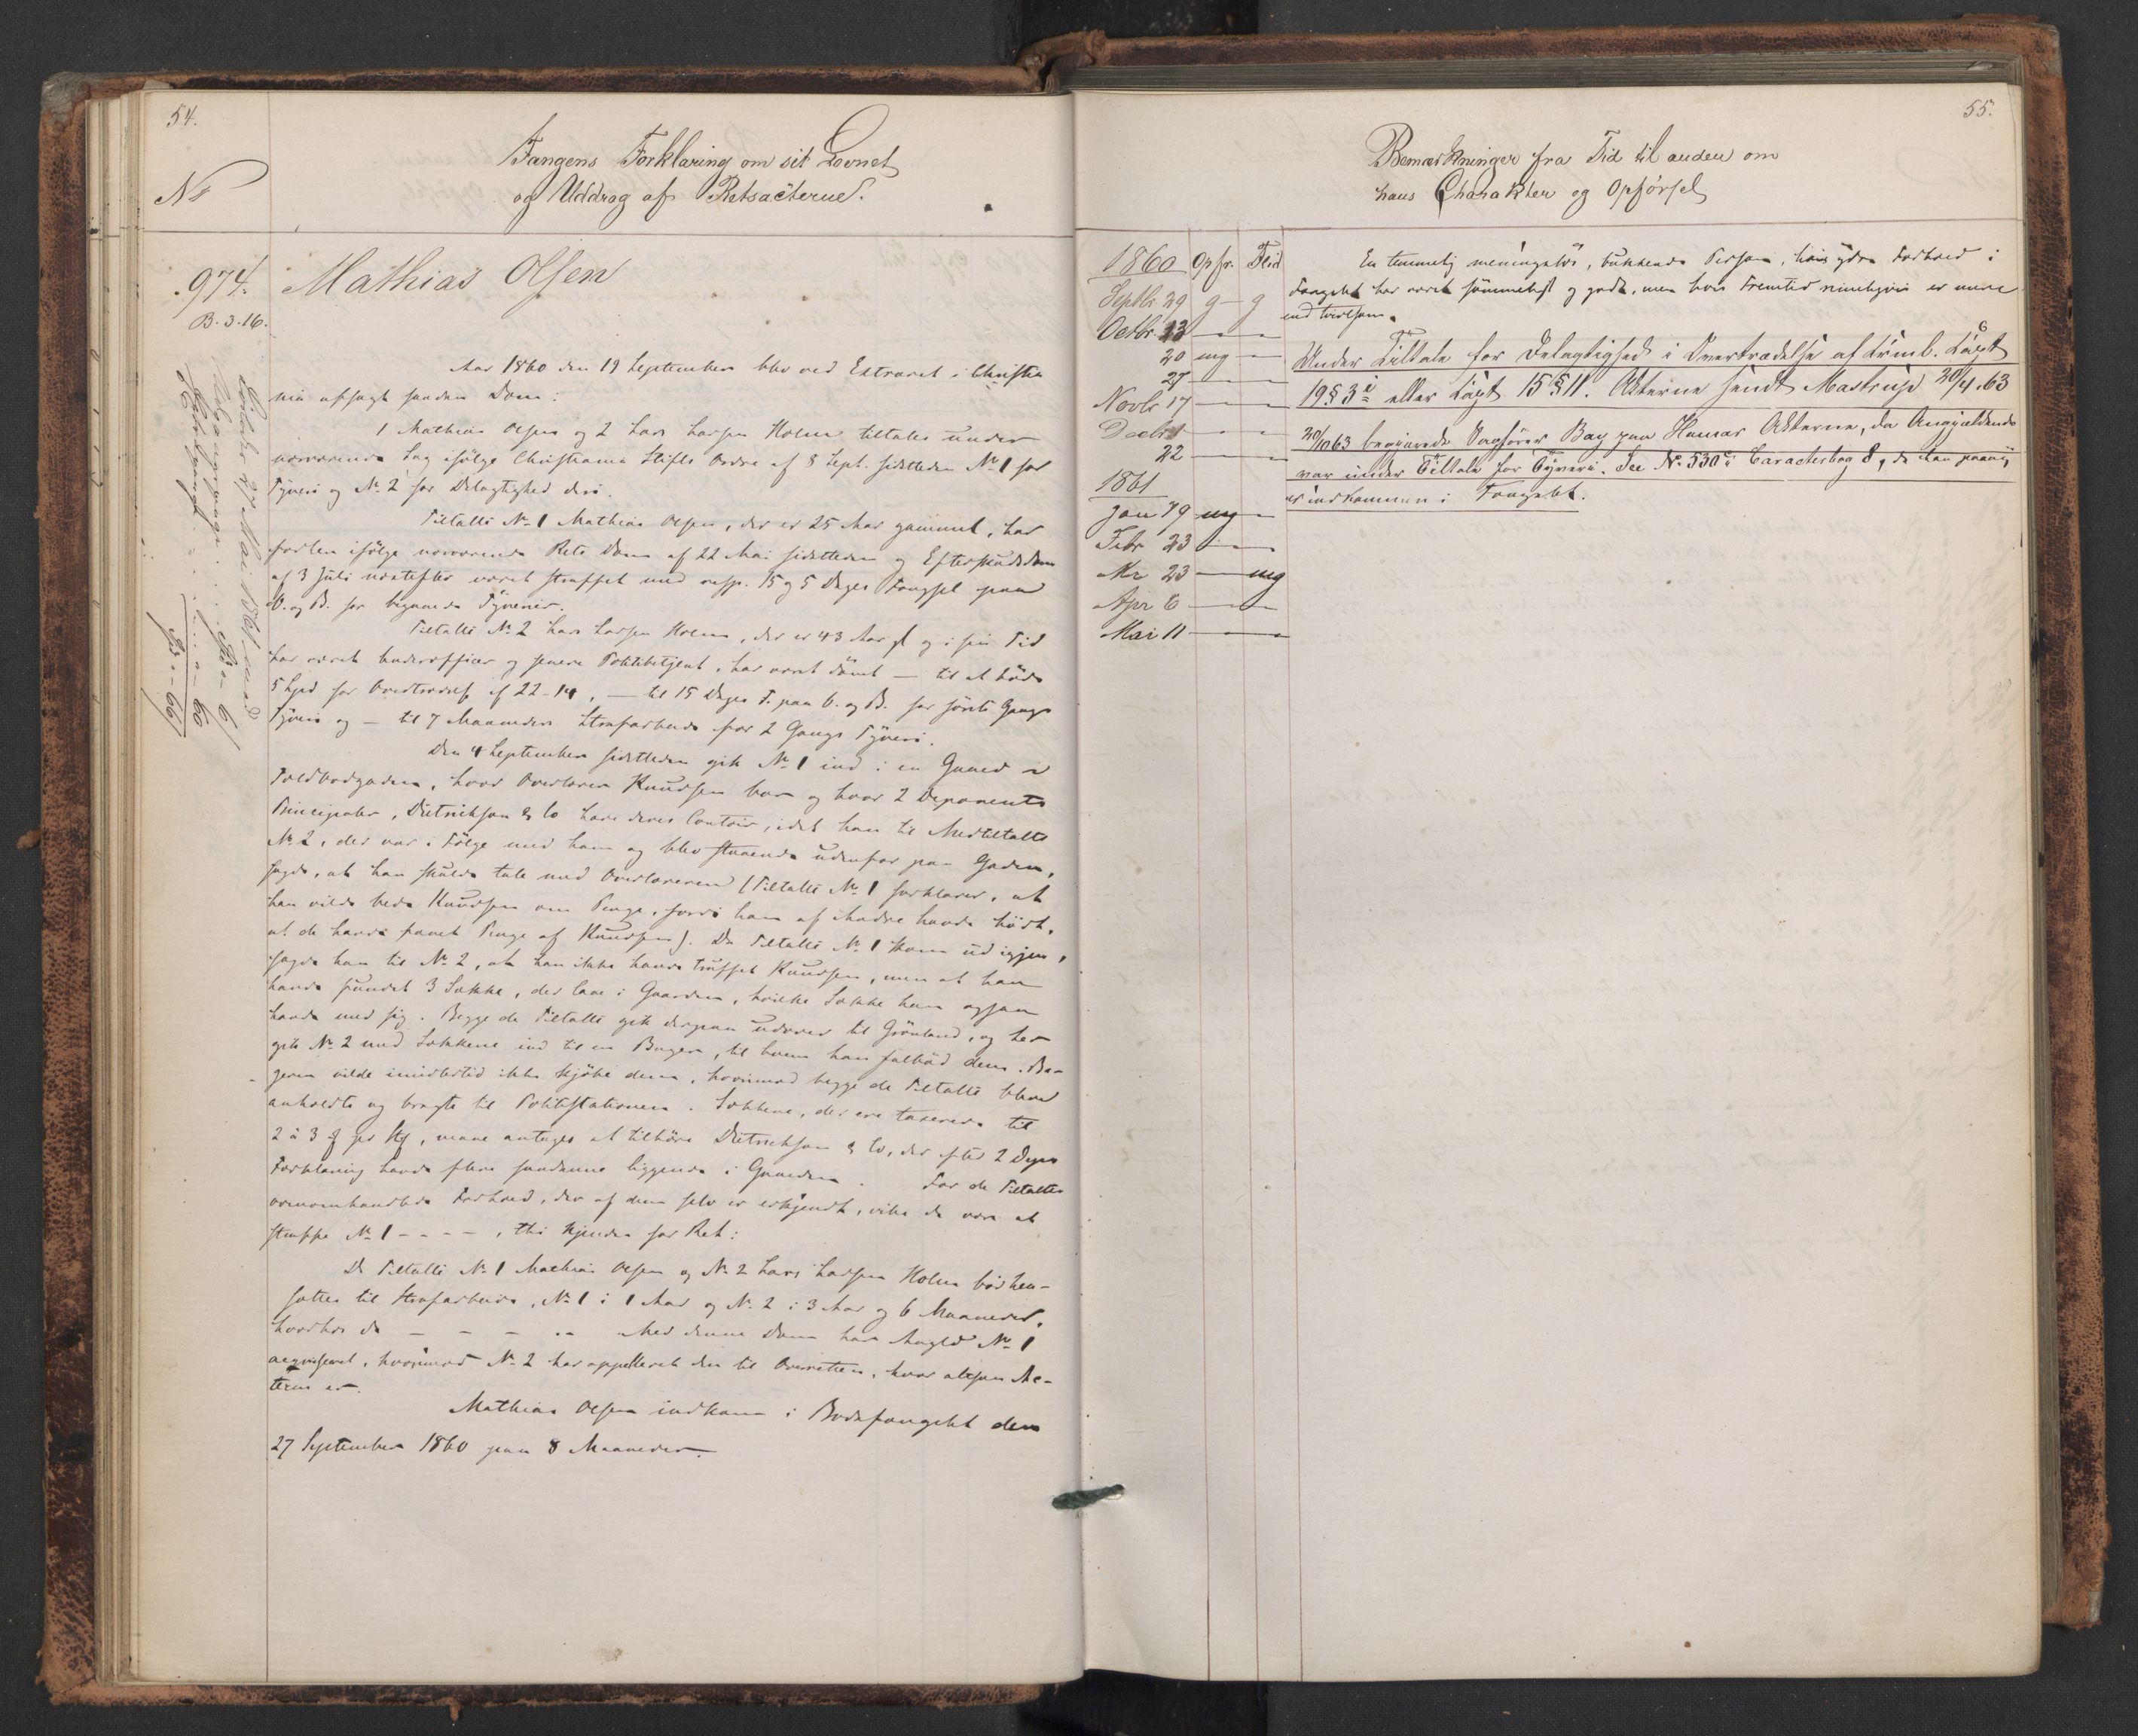 54.
Fangens Forklaring om sit Levnet
og Uddrag af Retsacterne.
No
974.
B. 3. 16.
Mathias Olsen
Aar 1860 den 19 September blev ved Extraret i Christia
nia afsagt saadan Dom:
1 Mathias Olsen og 2 Lars Larsen Holm tiltales under
nærværende Sag ifølge Christiania Stifts Ordre af 8 Sept. sidstleden No 1 for
Tyveri og No 2 for Delagtighed deri.
Tiltalte No 1 Mathias Olsen, der er 25 Aar gammel, har
forhen ifølge nærværende Rets Dom af 22 Mai sidstleden og Extraretsdom
af 3 Juli næstefter været straffet med resp. 15 og 5 Dages Fængsel paa
V. og B. for begaaede Tyverier.
Tiltalte No 2 Lars Larsen Holm, der er 43 Aar gl og i sin Tid
har været Underofficer og senere Politibetjent, har været dømt — til at bøde
5 Spd for Overtrædelse af 22-14, — til 15 Dages F. paa V. og B. for første Gangs
Tyveri og — til 7 Maaneders Strafarbeide for 2 Gangs Tyveri.
Den 4 September sidstleden gik No 1 ind i en Gaard i
Toldbodgaden, hvor Overlærer Knudsen bor og hvor 2 Deponents
Principaler, Dietrichson & Co have deres Contoir, idet han til Medtiltalte
No 2, der var i Følge med ham og blev staaende udenfor paa Gaden,
sagde, at han skulde tale med Overlæreren (Tiltalte No 1 forklarer, at
han vilde bede Knudsen om Penge, fordi han af Andre havde hørt,
at de havde faaet Penge af Knudsen). Da Tiltalte No 1 kom ud igjen,
sagde han til No 2, at han ikke havde truffet Knudsen, men at han
havde fundet 3 Sække, der laae i Gaarden, hvilke Sække han ogsaa
havde med sig. Begge de Tiltalte gik derpaa udover til Grønland, og her
gik No 2 med Sækkene ind til en Bager, til hvem han falbød dem. Ba-
geren vilde imidlertid ikke kjøbe dem, hvorimod begge de Tiltalte bleve
anholdte og bragte til Politistationen. Sækkene, der ere taxerede til
2 à 3 ꞵ pr Stk, maae antages at tilhøre Dietrichson & Co, der efter 2 Depon
Forklaring havde flere saadanne liggende i Gaarden. For de Tiltaltes
ovenomhandlede Forhold, der af dem selv er erkjendt, ville de være at
straffe No 1 - - - -, thi kjendes for Ret:
De Tiltalte No 1 Mathias Olsen og No 2 Lars Larsen Holm bør hen-
sættes til Strafarbeide, No 1 i 1 Aar og No 2 i 3 Aar og 6 Maaneder,
hvorhos de — — — .. Med denne Dom har Angld No 1
acquiesceret, hvorimod No 2 har appelleret den til Overretten, hvor altsaa Ac-
terne er.
Mathias Olsen indkom i Bodsfængslet den
27 September 1860 paa 8 Maaneder.
Løsladt 27 Mai 1861 med
6
60
66
55.
Bemærkninger fra Tid til anden om
hans Charakter og Opførsel
1860 Opfr. Flid
Septbr 29 g — g
Octbr 13 — —
20 mg —
27 — —
Novbr 17 — —
Decbr 1 — —
22 — —
1861
Jan 19 mg —
Febr 23 — —
Mr 23 — mg
Apr 6 — —
Mai 11 — —
En temmelig meningsløs, bukkende Person, hans ydre Forhold i
Fængslet har været sømmeligt og godt, men hans Fremtid rimeligvis er mere
end tvivlsom.
Under Tiltale for Delagtighed i Overtrædelse af Criml. Capt
19 § 3 eller Capt 15 § 11. Akterne sendt Mastrup 20/4.63
20/10 63 begjærede Sagfører Bay paa Hamar Akterne, da Angjældende
var under Tiltale for Tyveri. See No 530 i Caracterbog 8, da han paany
er indkommen i Fængslet.